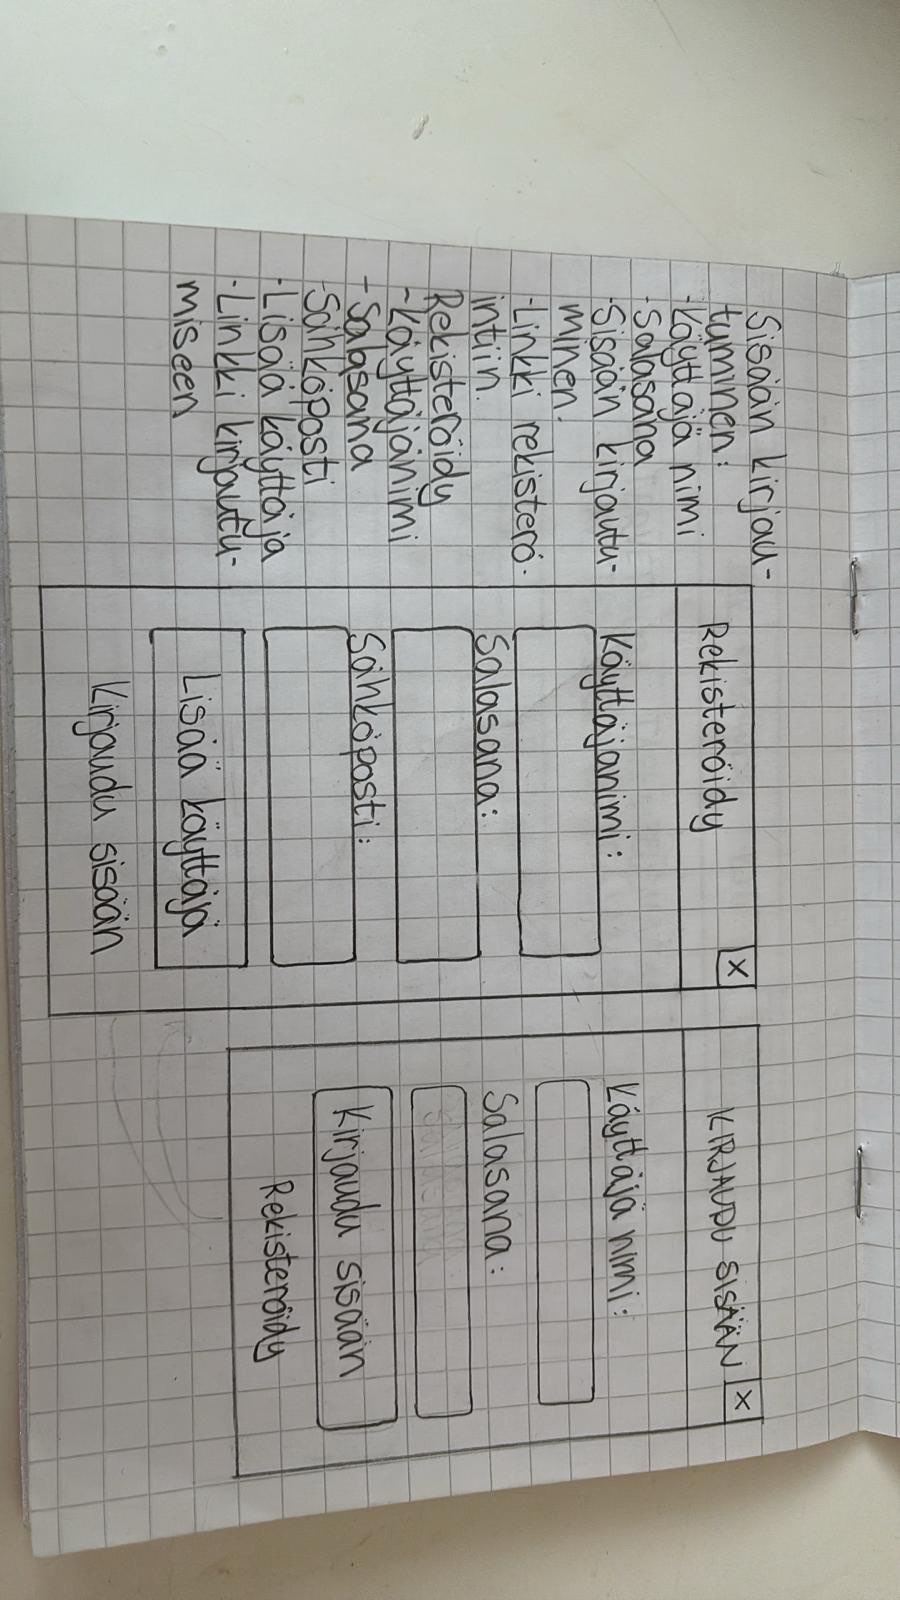 Sisään kirjau-
tuminen:
-Käyttäjä nimi
-Salasana
-Sisään kirjautu-
minen.
-Linkki rekisterö-
intiin.
Rekisteröidy
-Käyttäjänimi
-Salasana
-Sähköposti
-Lisää käyttäjä
-Linkki kirjautu-
miseen
Rekisteröidy
X
Käyttäjänimi:
Salasana:
Sähköposti:
Lisää käyttäjä
Kirjaudu sisään
KIRJAUDU SISÄÄN
X
Käyttäjä nimi:
Salasana:
Kirjaudu sisään
Rekisteröidy